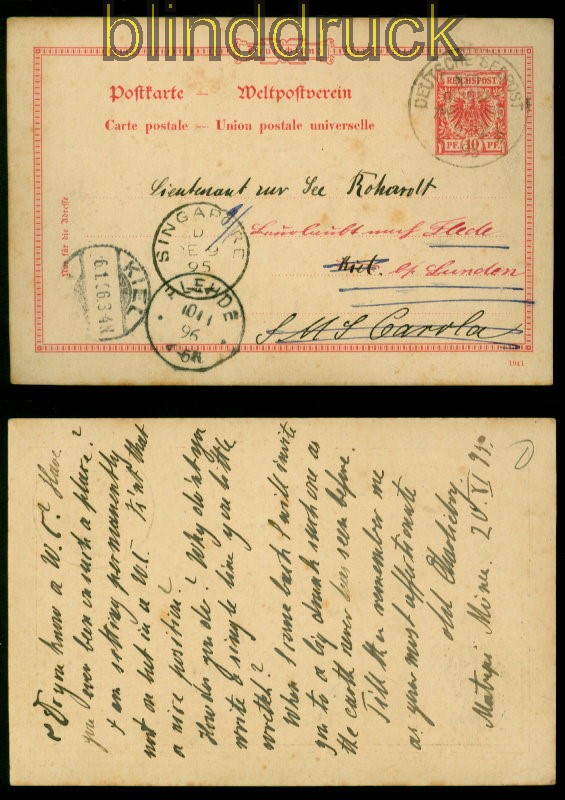 blinddruck
Postkarte — Weltpostverein
Carte postale — Union postale universelle
DEUTSCHE SEEPOST
REICHSPOST
PF. 10 PF.
95
Lieutenant zur See Rohardt
SINGAPORE
DE 9
95
Beurlaubt nach Flede
Nur für die Adresse
KIEL
6.1.96.3-4N
Kiel. b/ Lunden
FLEHDE
10/1
96
6N
S M S Carola
1941
Do you know a W.C.? Have
you ever been in such a place?
I am sitting permanently
not in but in a W.C. Isn't that
a nice position?
How do you do? Why don't you
write a single line you little
wretch?
When I come back I will invite
you to a big drunk such one as
the earth never has seen before.
Till then remember me
as your most affectionate
old
Matupi Mine. 20/XI 95.